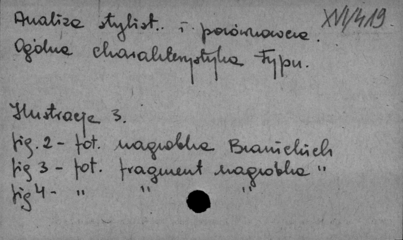 XVI/419
Analiza stylist. i porównawcza.
Ogólna charakterystyka typu.
Ilustracje 3.
fig. 2 - fot. nagrobka Branickich
fig 3 - fot. fragment nagrobka "
fig 4 - " " "